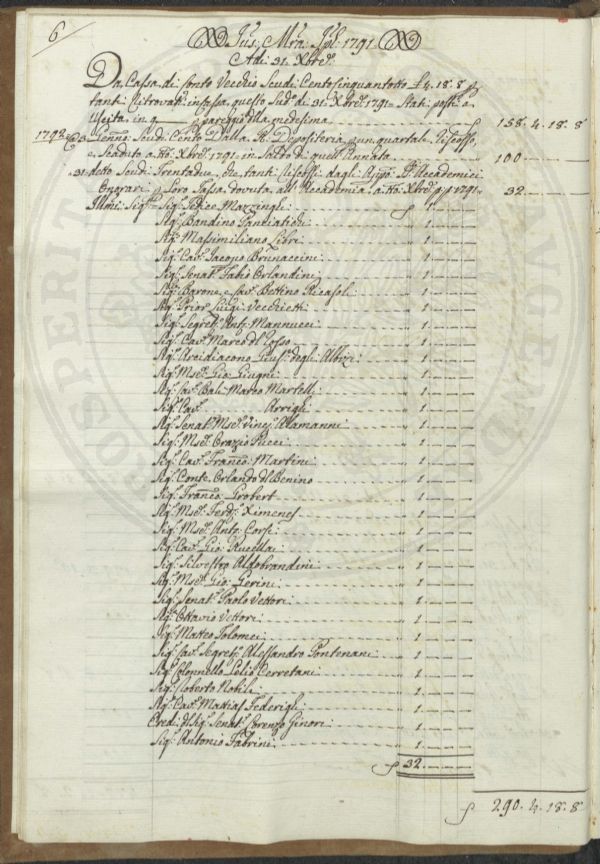 6
Jus: Mra: Jpl: 1791
Adi 31. Xbre
Da Cassa di Conto Vecchio Scudi Centocinquantotto £ 4. 18. 8 p
tanti Ritrovati in Cassa questo Sud.º di 31. Xbre 1791= Stati posti a
Uscita in q p pareggio della medesima 158. 4. 18. 8
1792 Genn.º Scudi Cento Dalla R. Depositeria p un quartale Riscosso,
e Scaduto a tto. Xbre 1791 in Saldo di quell'Annata 100
31 detto Scudi Trentadue, che tanti Riscossi dagli Accademici
Onorari p Loro Tassa dovuta all'Accademia a tto. Xbre 1791= 32
Ill.mi Sig.ri Sig.r Mazzinghi 1
Sig.r Bandino Panciatichi 1
Sig.r Massimiliano Libri 1
Sig.r Cav.r Jacopo Brunaccini 1
Sig.r Senat.r Fabio Orlandini 1
Sig.r Barone, e Cav.r Bettino Ricasoli 1
Sig.r Prior Luigi Vecchietti 1
Sig.r Segret.º Ant.º Mannucci 1
Sig.r Cav.r Marco del Rosso 1
Sig.r Arcidiacono degli Albizi 1
Sig.r Mse. Gio: Giugni 1
Sig.r Cav.r Balì Marco Martelli 1
Sig.r Cav.r Arrighi 1
Sig.r Senat.r Mse. Vinc.º Alamanni 1
Sig.r Mse. Orazio Pucci 1
Sig.r Cav.r Franc.º Martini 1
Sig.r Conte Orlando del Benino 1
Sig.r Franc.º Grobert 1
Sig.r Mse. Ferd.º Ximenes 1
Sig.r Mse. Ant.º Corsi 1
Sig.r Cav.r Gio: Rucellai 1
Sig.r Silvestro Aldobrandini 1
Sig.r Mse. Gio: Gerini 1
Sig.r Senat.r Paolo Vettori 1
Sig.r Ottavio Vettori 1
Sig.r Matteo Tolomei 1
Sig.r Cav.r Segret.º Alessandro Pontenani 1
Sig.r Colonnello Lelio Cerretani 1
Sig.r Roberto Nobili 1
Sig.r Cav.r Mattias Federighi 1
Credi del Sig.r Senat.r Lorenzo Ginori 1
Sig.r Antonio Fabrini 1
32
290. 4. 18. 8